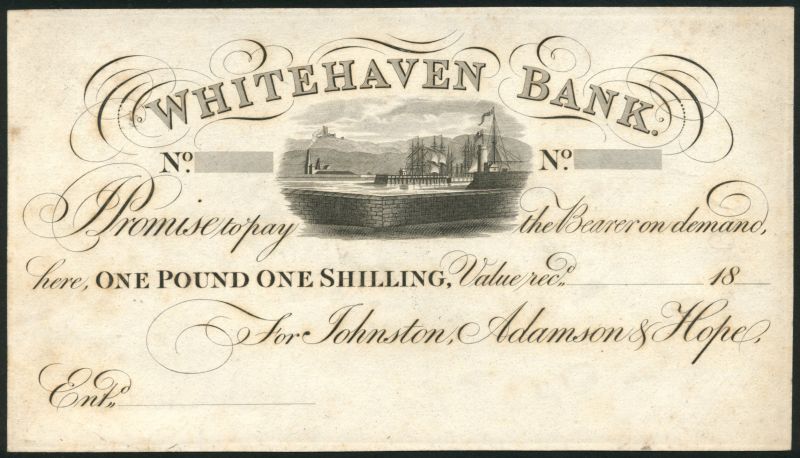 WHITEHAVEN BANK.
No. No.
I Promise to pay the Bearer on demand,
here, ONE POUND ONE SHILLING, Value rec.d 18
For Johnston, Adamson & Hope,
Ent.d